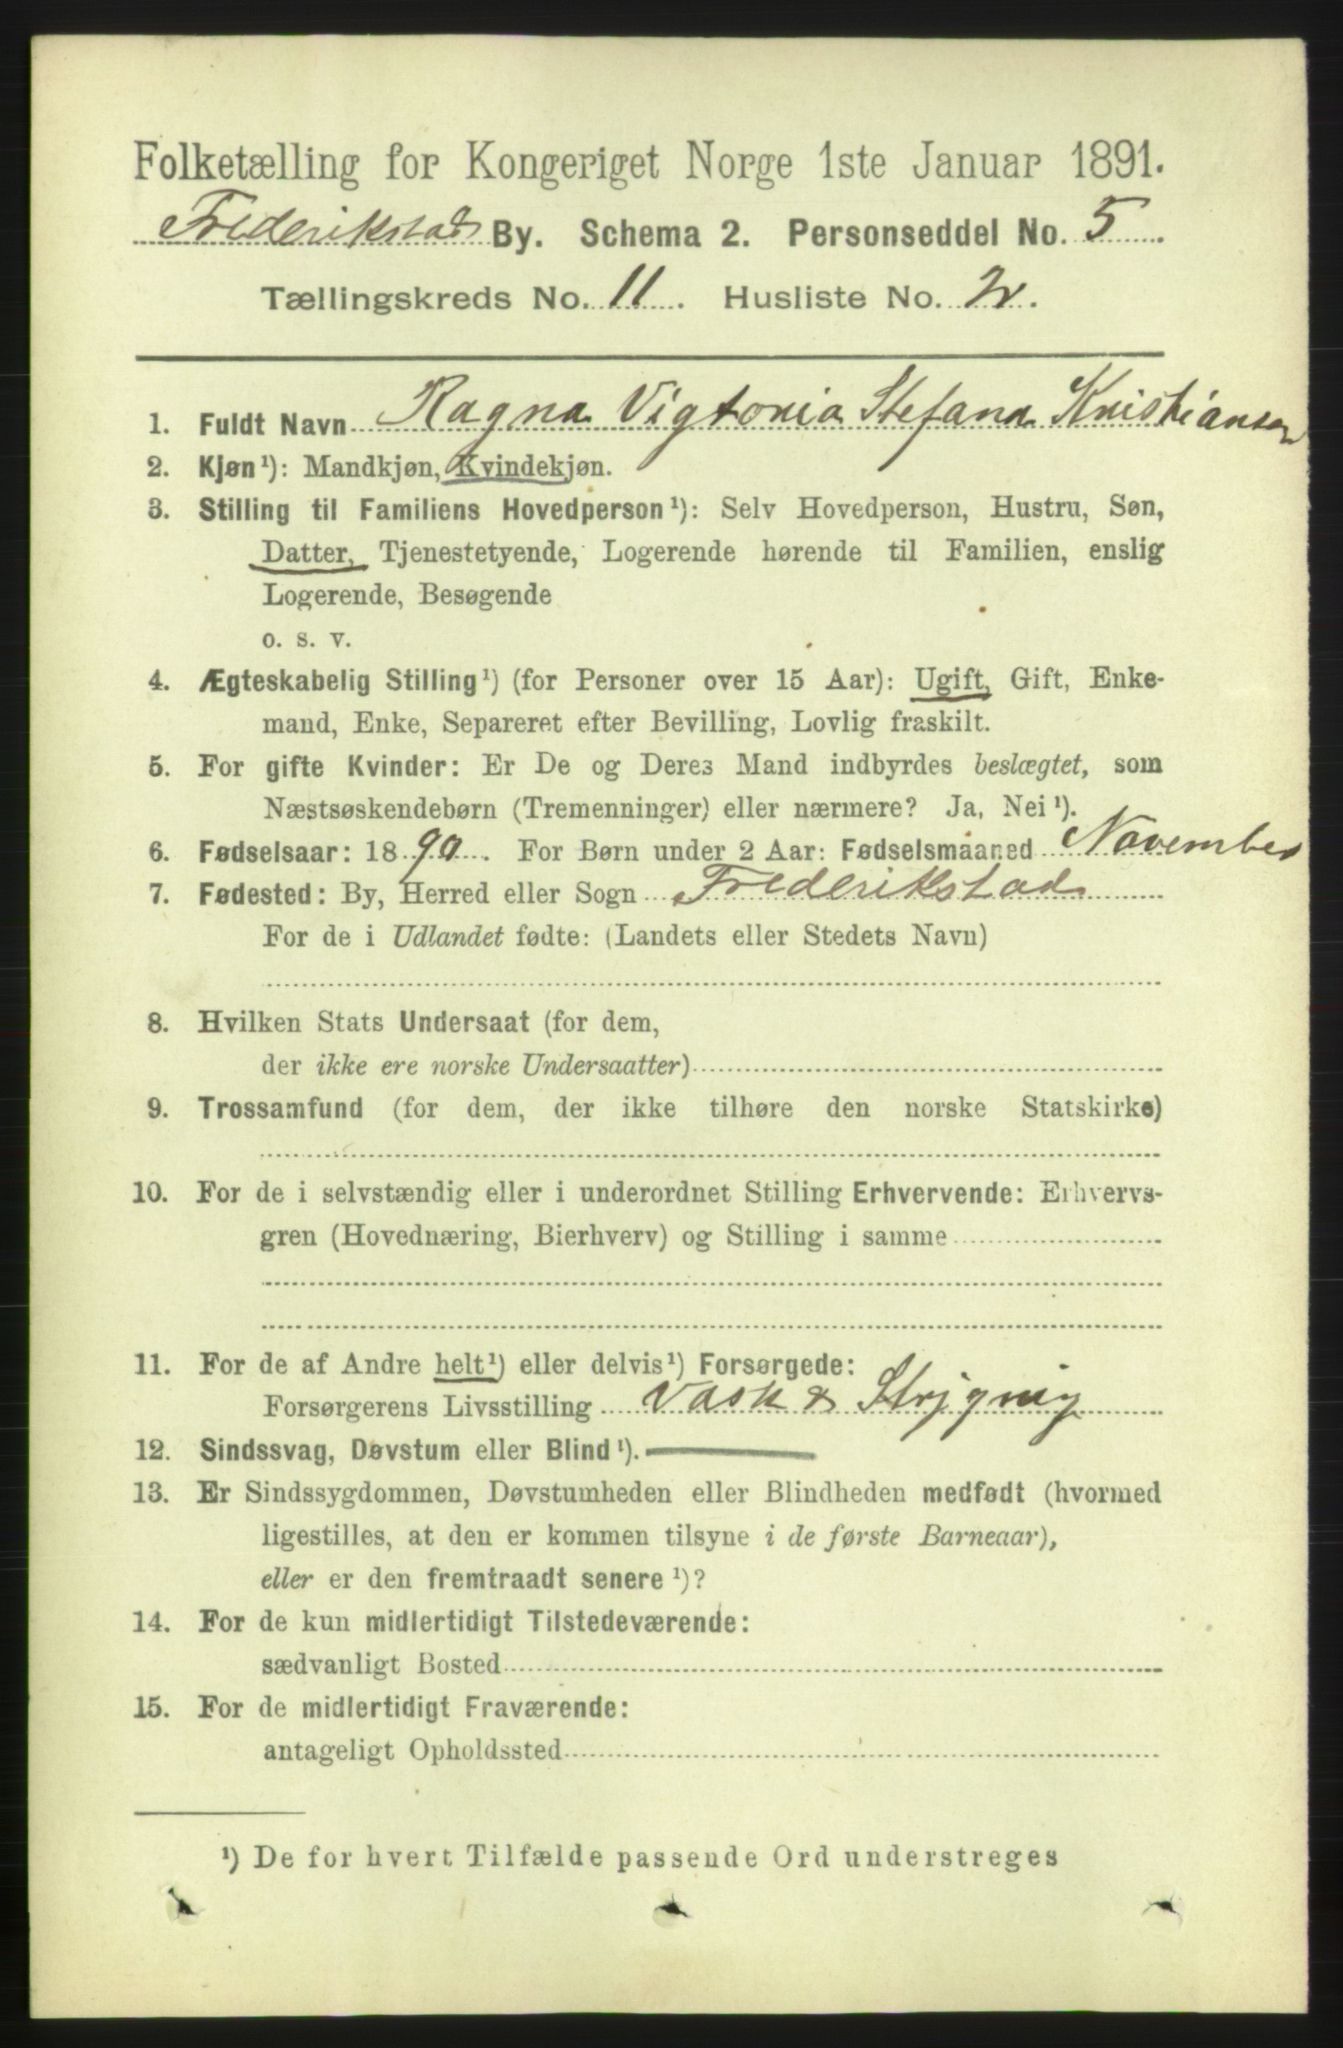 Folketælling for Kongeriget Norge 1ste Januar 1891.
Frederikstad By. Schema 2. Personseddel No. 5
Tællingskreds No. 11. Husliste No. 2.
1. Fuldt Navn Ragna Vigtoria Stefana Kristiansen
2. Kjøn¹): Mandkjøn, Kvindekjøn.
3. Stilling til Familiens Hovedperson¹): Selv Hovedperson, Hustru, Søn,
Datter, Tjenestetyende, Logerende hørende til Familien, enslig
Logerende, Besøgende
o. s. v.
4. Ægteskabelig Stilling¹) (for Personer over 15 Aar): Ugift, Gift, Enke-
mand, Enke, Separeret efter Bevilling, Lovlig fraskilt.
5. For gifte Kvinder: Er De og Deres Mand indbyrdes beslægtet, som
Næstsøskendebørn (Tremenninger) eller nærmere? Ja, Nei¹).
6. Fødselsaar: 1890. For Børn under 2 Aar: Fødselsmaaned November
7. Fødested: By, Herred eller Sogn Frederikstad
For de i Udlandet fødte: (Landets eller Stedets Navn)
8. Hvilken Stats Undersaat (for dem,
der ikke ere norske Undersaatter)
9. Trossamfund (for dem, der ikke tilhøre den norske Statskirke)
10. For de i selvstændig eller i underordnet Stilling Erhvervende: Erhvervs-
gren (Hovednæring, Bierhverv) og Stilling i samme
11. For de af Andre helt¹) eller delvis¹) Forsørgede:
Forsørgerens Livsstilling Vask & Strygnig
12. Sindssvag, Døvstum eller Blind¹).
13. Er Sindssygdommen, Døvstumheden eller Blindheden medfødt (hvormed
ligestilles, at den er kommen tilsyne i de første Barneaar),
eller er den fremtraadt senere¹)?
14. For de kun midlertidigt Tilstedeværende:
sædvanligt Bosted
15. For de midlertidigt Fraværende:
antageligt Opholdssted
¹) De for hvert Tilfælde passende Ord understreges